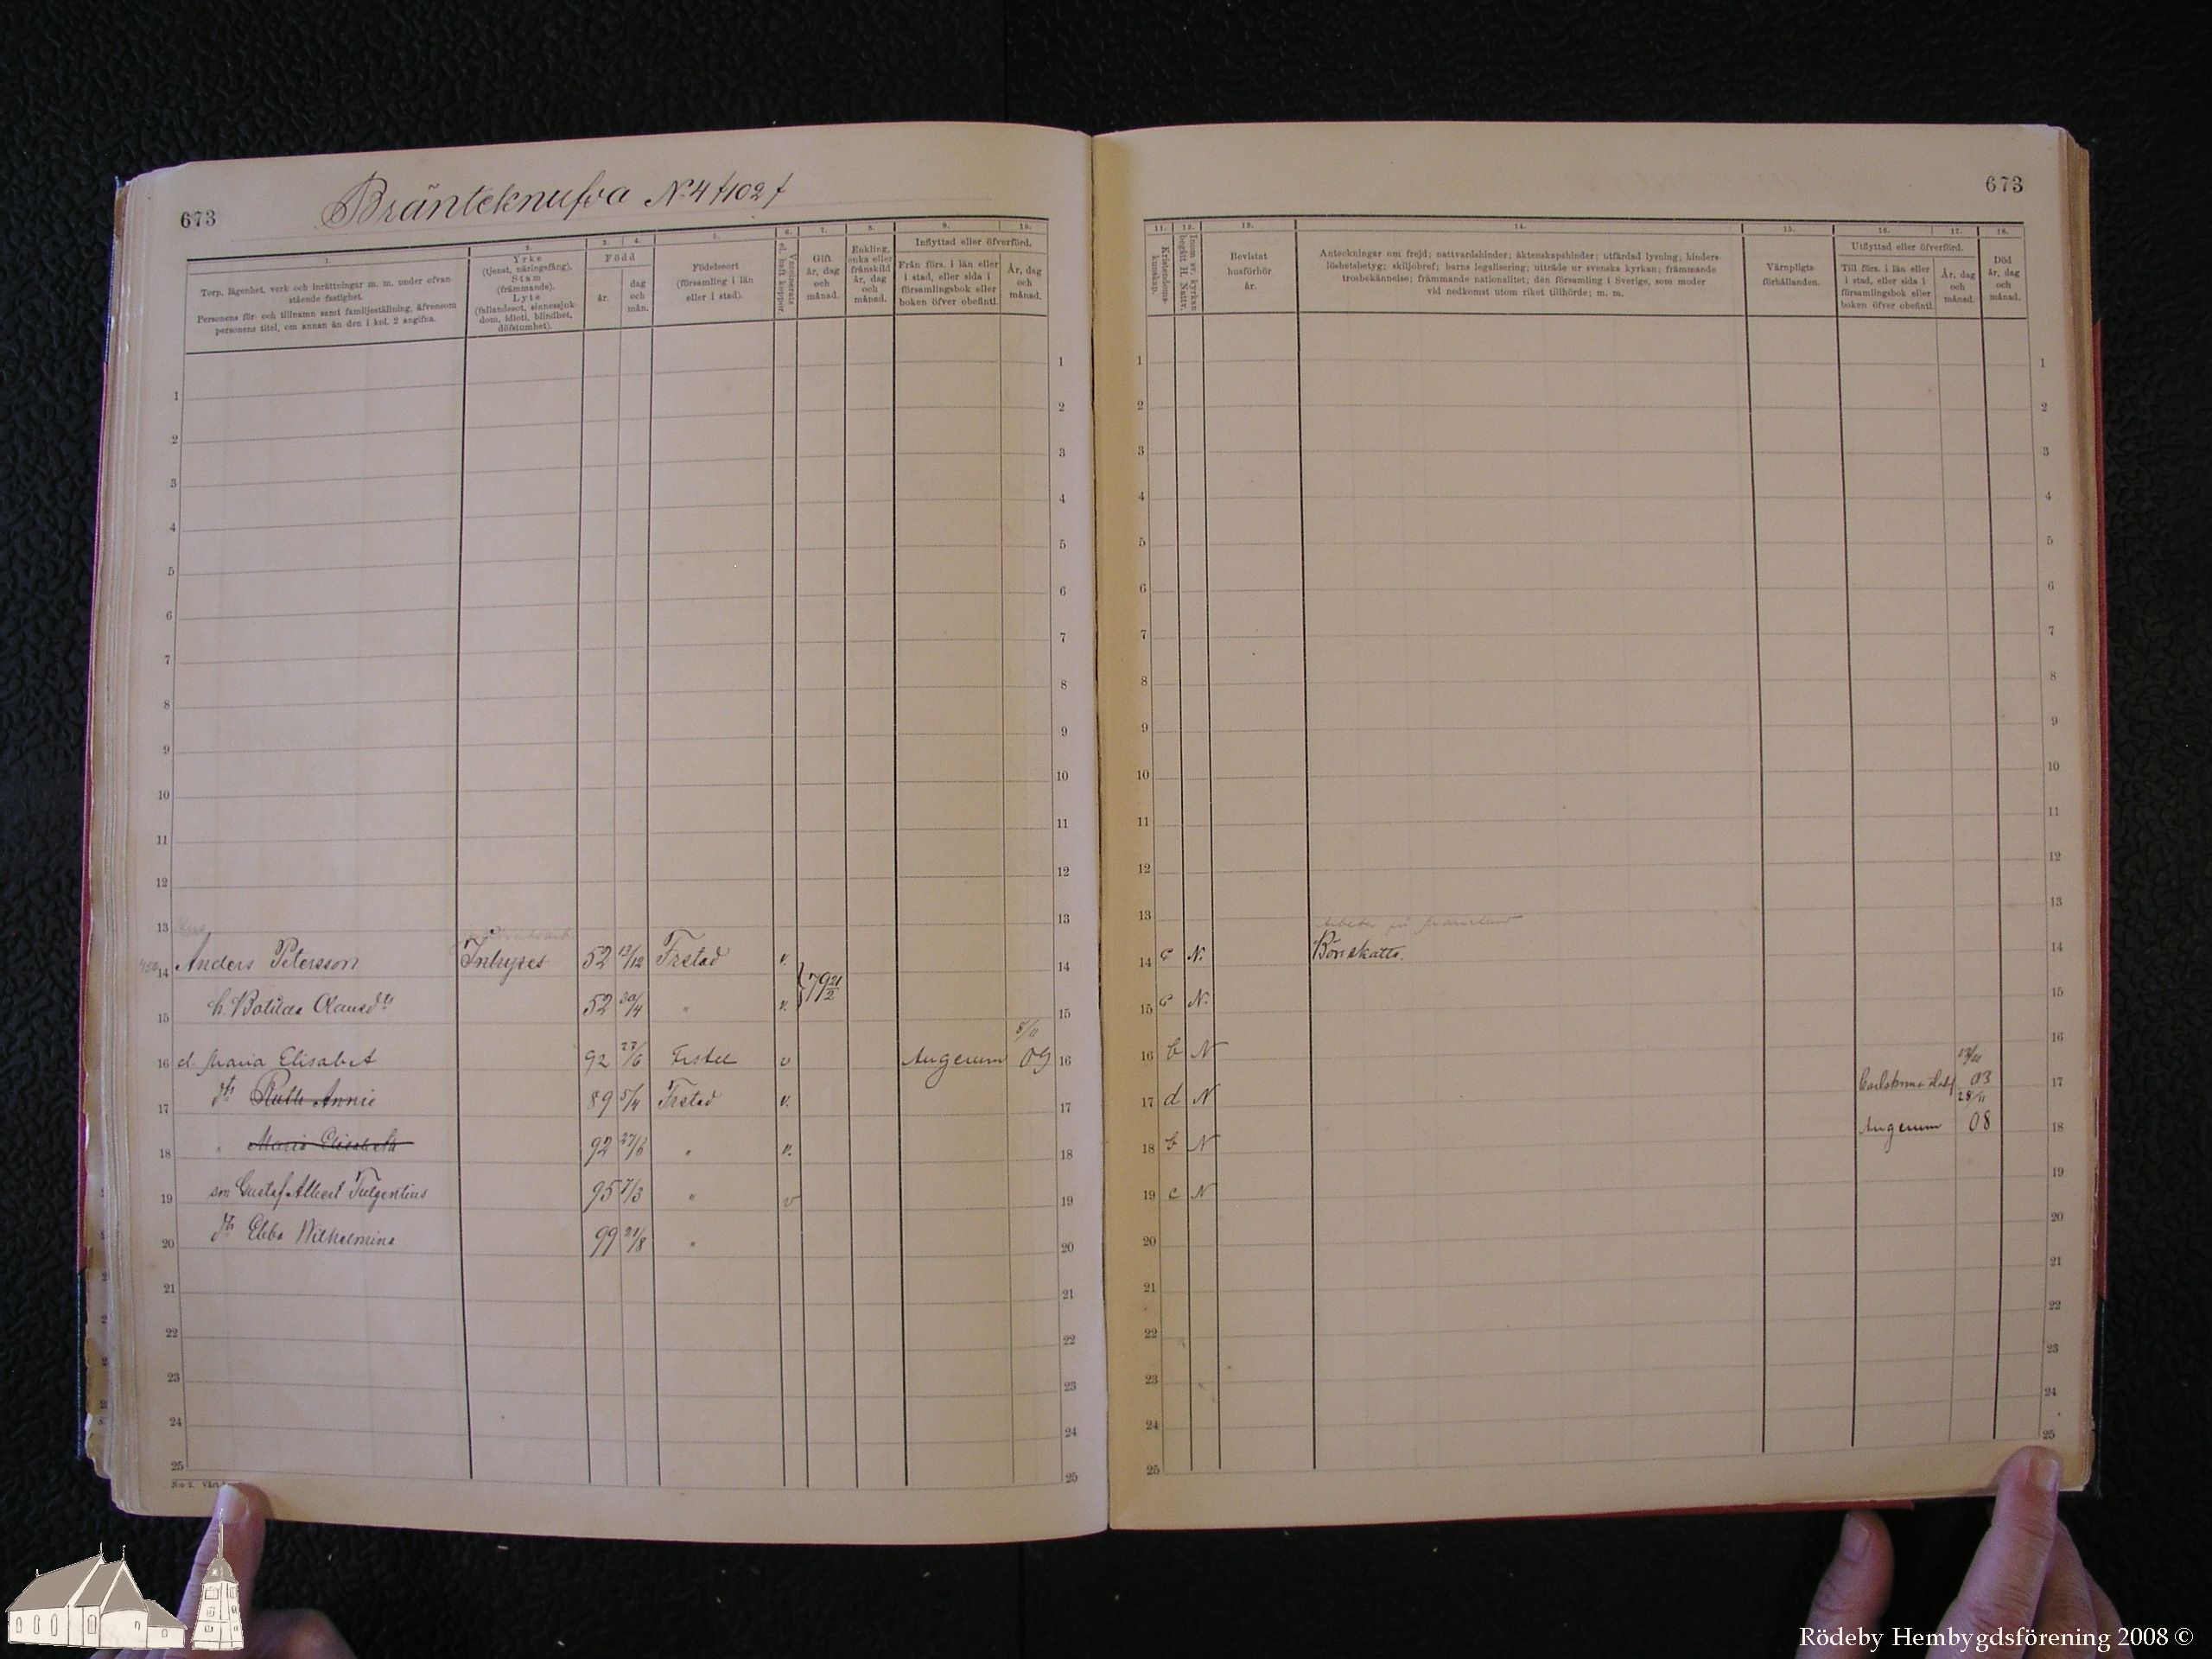 673
Bränteknufva N:4 f102f
1.
Torp, lägenhet, verk och inrättningar m. m. under ofvan-
stående fastighet.
Personens för- och tillnamn samt familjeställning, äfvensom
personens titel, om annan än den i kol. 2 angifna.
2.
Yrke
(tjenst, näringsfång).
Stam
(främmande).
Lyte
(fallandesot, sinnessjuk-
dom, idioti, blindhet,
döfstumhet).
3.
4.
Född
år.
dag
och
mån.
5.
Födelseort
(församling i län
eller i stad).
6.
Vaccinerats
el. haft koppor.
7.
Gift
år, dag
och
månad.
8.
Enkling,
enka eller
frånskild
år, dag
och
månad.
9.
10.
Inflyttad eller öfverförd.
Från förs. i län eller
i stad, eller sida i
församlingsbok eller
boken öfver obefintl.
År, dag
och
månad.
1
2
3
4
5
6
7
8
9
10
11
12
13
14 Anders Petersson Inhyses 52 13/12 Frstad v.
15 h. Botilda Olausdtr 52 20/4 " v. } 79 21/2
8/11
16 d. Maria Elisabet 92 27/6 Frstu v Augerum 09
17 dtr Ruth Annie 89 5/4 Frstad v.
18 " Maria Elisabeth 92 27/6 " v.
19 son Gustaf Albert Fulgentius 95 7/3 " v
20 dtr Ebba Wilhelmina 99 21/8 "
21
22
23
24
25
N:o 2.
673
11.
Kristendoms-
kunskap.
12.
Inom sv. kyrkan
begått H. Nattv.
13.
Bevistat
husförhör
år.
14.
Anteckningar om frejd; nattvardshinder; äktenskapshinder; utfärdad lysning; hinders-
löshetsbetyg; skiljobref; barns legalisering; utträde ur svenska kyrkan; främmande
trosbekännelse; främmande nationalitet; den församling i Sverige, som moder
vid nedkomst utom riket tillhörde; m. m.
15.
Värnpligts-
förhållanden.
16.
17.
Utflyttad eller öfverförd.
Till förs. i län eller
i stad, eller sida i
församlingsbok eller
boken öfver obefintl.
År, dag
och
månad.
18.
Död
år, dag
och
månad.
1
2
3
4
5
6
7
8
9
10
11
12
13
14 c N.
15 c N.
16 b N
17 d N 03
28/11
18 b N Augerum 08
19 c N
20
21
22
23
24
25
Rödeby Hembygdsförening 2008 ©